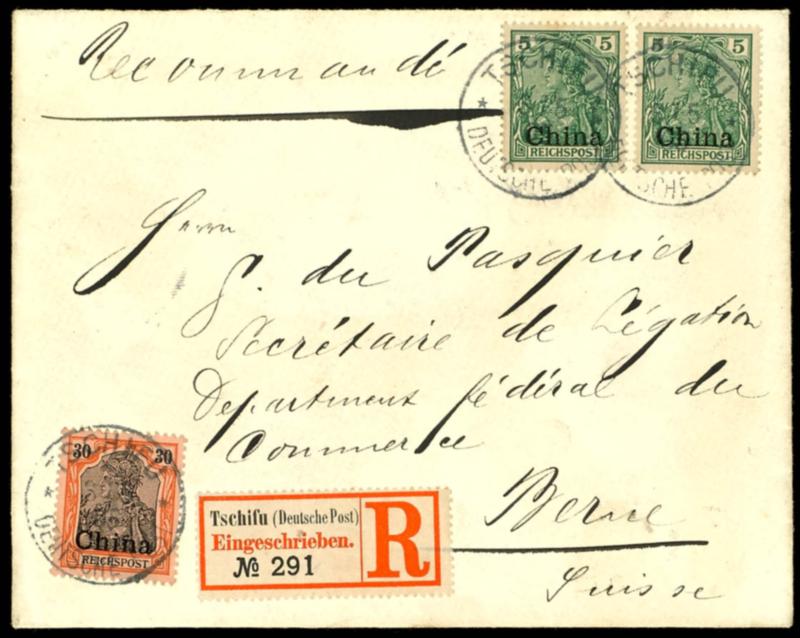 Recommandé
5 5
China
REICHSPOST
5 5
China
REICHSPOST
TSCHIFU
DEUTSCHE
TSCHIFU
Herrn
G. du Pasquier
Secrétaire de Légation
Département fédéral du
Commerce
Berne
Suisse
30 30
China
REICHSPOST
TSCHIFU
DEUTSCHE
Tschifu (Deutsche Post)
Eingeschrieben.
№ 291
R